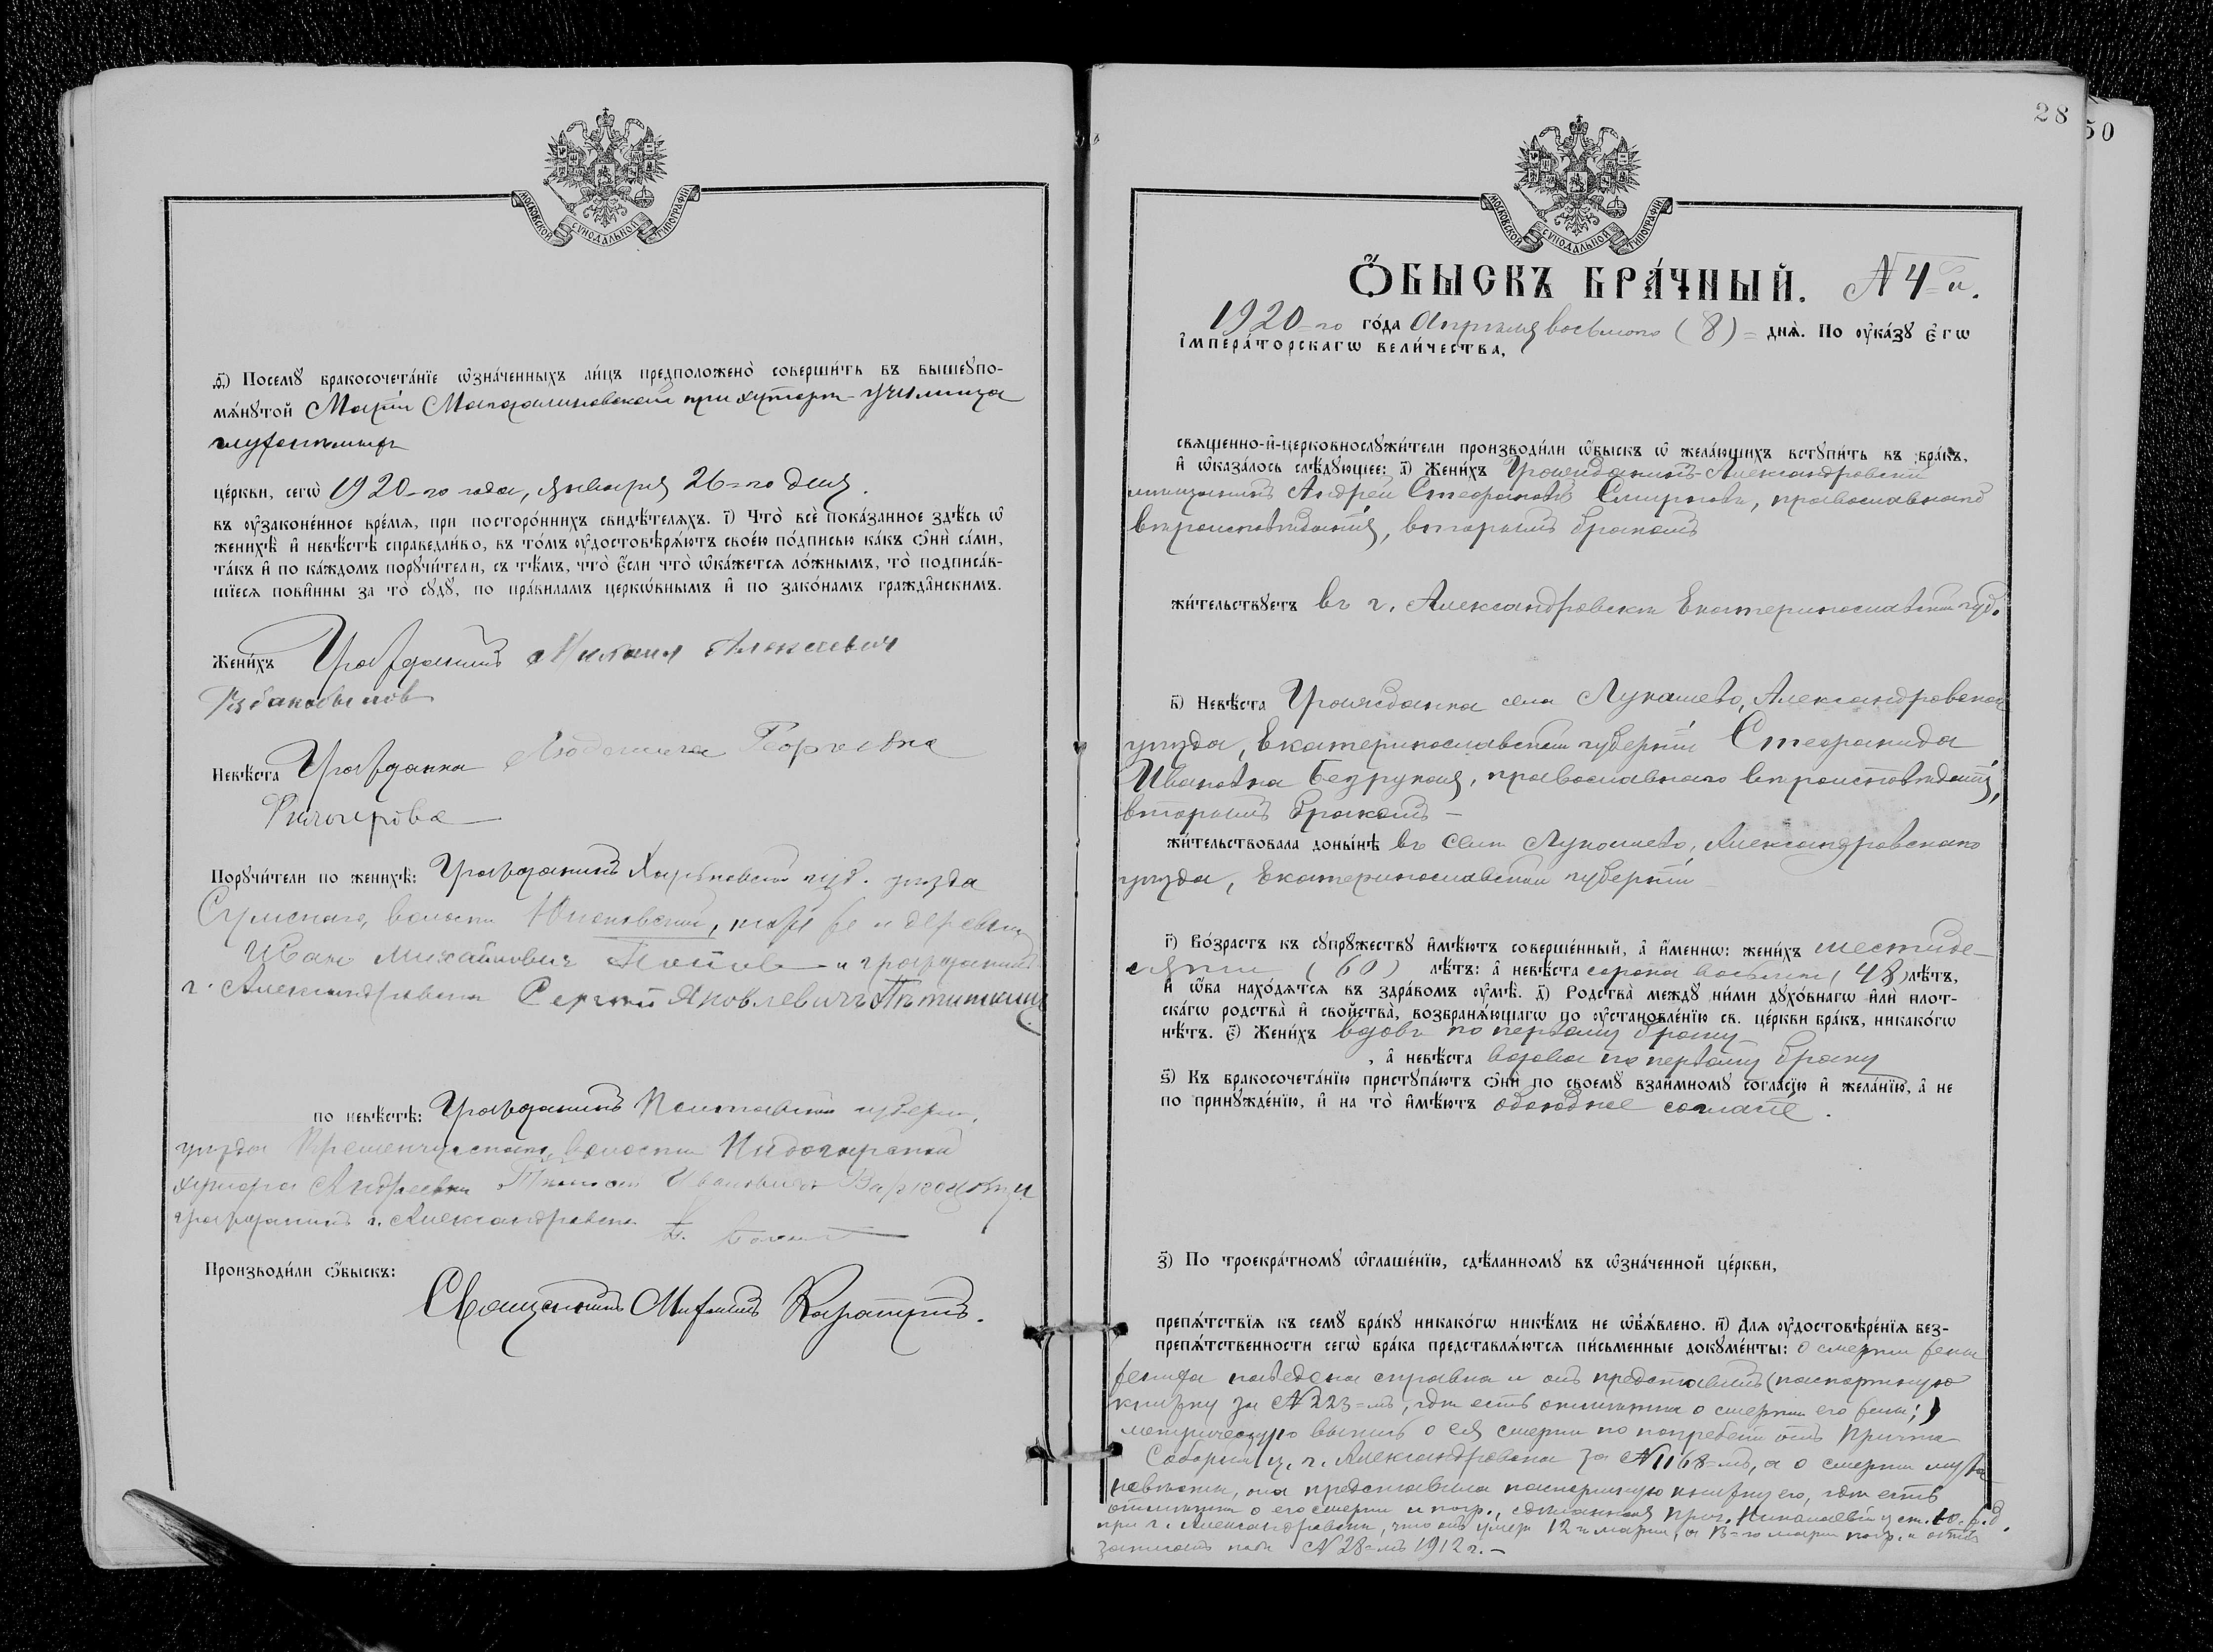 МОСКОВСКОЙ СѴНОДАЛЬНОЙ ТИПОГРАФІИ
ѳ҃) Посемꙋ̀ бракосочета́нїе ѡ҆зна́ченныхъ ли́цъ предположено̀ соверши́ть въ вышеꙋпо-
мѧ́нꙋтой Марiи Магдалиновской при хуторѣ училища
глухонѣмыхъ
це́ркви, сегѡ̀ 1920-го года, января 26-го дня.
въ ᲂу҆законе́нное вре́мѧ, при посторо́ннихъ свидѣ́телѧхъ. і҃) Что̀ всѐ пока́занное здѣ́сь ѡ҆
женихѣ̀ и҆ невѣ́стѣ справедли́во, въ то́мъ ᲂу҆достовѣрѧ́ютъ свое́ю по́дписью ка́къ ѻ҆нѝ са́ми,
та́къ и҆ по ка́ждомъ порꙋчи́тели, съ тѣ́мъ, что̀ є҆́сли что̀ ѡ҆ка́жетсѧ ло́жнымъ, то̀ подписа́в-
шїесѧ пови́нны за то̀ сꙋдꙋ̀, по пра́виламъ церкѡ́внымъ и҆ по зако́намъ гражда̂нскимъ.
Жени́хъ Гражданинъ Михаил Алексеевич
Невѣ́ста Гражданка Людмила Георгиевна
Порꙋчи́тели по женихѣ̀: Гражданинъ Харьковской губ. уѣзда
Сумскаго, волости Юнаковской, той же и деревни
Иван Михайлович Попов и гражданинъ
г. Александровска Сергѣй Яковлевичъ
по невѣ́стѣ: Гражданинъ Полтавской губерніи,
уѣзда Кременчугскаго, волости
хутора Андреевки Иванович
гражданинъ г. Александровска
Производи́ли ѻ҆́быскъ:
Священникъ Михаилъ
28
50
МОСКОВСКОЙ СѴНОДАЛЬНОЙ ТИПОГРАФІИ
Ѻ҆́БЫСКЪ БРА́ЧНЫЙ. N 4-й.
1920-го го́да Апрѣля восьмого (8) - днѧ̀. По ᲂу҆ка́зꙋ є҆гѡ̀
і҆мпера́торскагѡ вели́чества,
свѧще́нно-и҆-церковнослꙋжи́тели производи́ли ѻ҆́быскъ ѡ҆ жела́ющихъ встꙋпи́ть въ бра́къ,
и҆ ѡ҆каза́лось слѣ́дꙋющее: а҃) Жени́хъ Гражданинъ-Александровскій
мѣщанинъ Андрей Стефановъ Смирновъ, православнаго
вѣроисповѣданія, вторымъ бракомъ
жи́тельствꙋетъ въ г. Александровскѣ Екатеринославской губ.
в҃) Невѣ́ста Гражданка села Лукашево, Александровскаго
уѣзда, Екатеринославской губерніи Стефанида
Ивановна Безрукая, православнаго вѣроисповѣданія,
вторымъ бракомъ -
жи́тельствовала доны́нѣ въ селѣ Лукашево, Александровскаго
уѣзда, Екатеринославской губерніи
г҃) Во́зрастъ къ сꙋпрꙋ́жествꙋ и҆мѣ́ютъ соверше́нный, а҆ и҆́меннѡ: жени́хъ шестиде-
сяти (60) лѣ́тъ: а҆ невѣ́ста сорока восьми (48) лѣ́тъ,
и҆ ѻ҆́ба нахо́дѧтсѧ въ здра́вомъ ᲂу҆мѣ̀. д҃) Родства̀ междꙋ̀ ни́ми дꙋхо́внагѡ и҆лѝ плот-
ска́гѡ родства̀ и҆ сво́йства̀, возбранѧ́ющагѡ по ᲂу҆становле́нїю св. це́ркви бра́къ, никако́гѡ
нѣ́тъ. є҃) Жени́хъ вдовъ по первому браку
, а҆ невѣ́ста вдова по первому браку
ѕ҃) Къ бракосочета́нїю пристꙋпа́ютъ ѻ҆нѝ по своемꙋ̀ взаи́мномꙋ согла́сїю и҆ жела́нїю, а҆ не
по принꙋжде́нїю, и҆ на то̀ и҆мѣ́ютъ обоюдное согласіе.
з҃) По троекра́тномꙋ ѡ҆глаше́нїю, сдѣ́ланномꙋ въ ѡ҆зна́ченной це́ркви,
препѧ́тствїѧ къ семꙋ̀ бра́кꙋ никако́гѡ никѣ́мъ не ѡ҆б̾ѧ́влено. и҃) Длѧ̀ ᲂу҆достовѣре́нїѧ без-
препѧ́тственности сегѡ̀ бра́ка представлѧ́ютсѧ пи́сьменные докꙋме́нты: о смерти жены
жениха наведена справка и онъ представилъ (паспортную
книжку за N 223-мъ, гдѣ есть отмѣтка о смерти его жены;)
метрическую выпись о ея смерти и погребеніи отъ причта
Соборной ц. г. Александровска за N 1168-мъ, а о смерти мужа
невѣсты, она представила паспортную книжку его, гдѣ есть
отмѣтка о его смерти и погр., сдѣланная прич. Николаевской ц. ст. Ю. ж. д.
при г. Александровскѣ, что онъ умеръ 12-го марта, а 13-го марта погр. и актъ
записанъ подъ N 28-мъ 1912 г. -